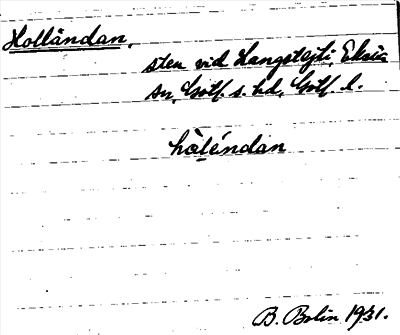 Holländan,
sten vid Langstajti, Eksta
sn, Gotl. s. hd, Gotl. l.
hòléndan
B. Bolin 1931.